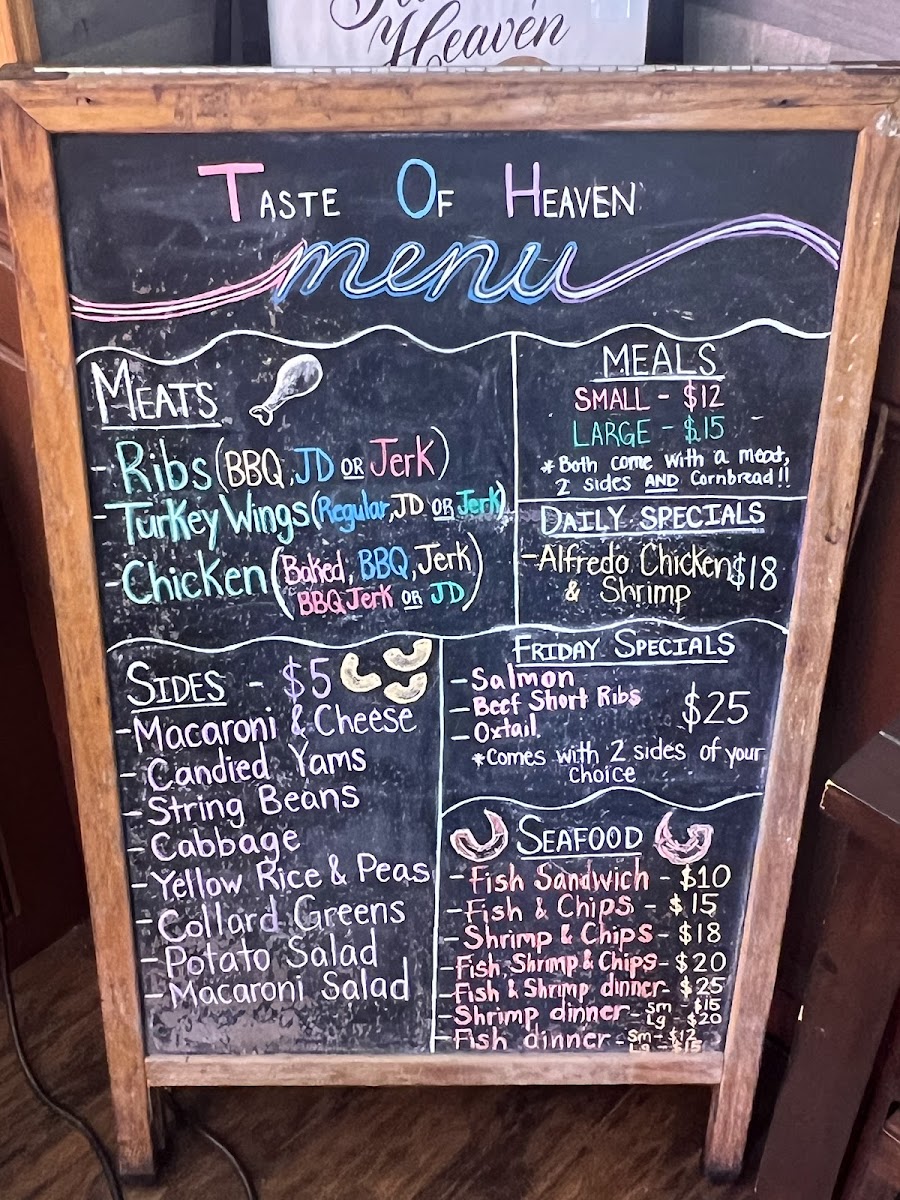 Heaven
TASTE OF HEAVEN
menu
MEATS
- Ribs (BBQ, JD OR Jerk)
- Turkey Wings (Regular, JD OR Jerk)
- Chicken (Baked, BBQ, Jerk
BBQ Jerk OR JD)
MEALS
SMALL - $12
LARGE - $15
* Both come with a meat,
2 sides AND Cornbread!!
DAILY SPECIALS
- Alfredo Chicken $18
& Shrimp
SIDES - $5
- Macaroni & Cheese
- Candied Yams
- String Beans
- Cabbage
- Yellow Rice & Peas
- Collard Greens
- Potato Salad
- Macaroni Salad
FRIDAY SPECIALS
- Salmon
- Beef Short Ribs $25
- Oxtail
*Comes with 2 sides of your
choice
SEAFOOD
- Fish Sandwich - $10
- Fish & Chips - $15
- Shrimp & Chips - $18
- Fish, Shrimp & Chips - $20
- Fish & Shrimp dinner - $25
- Shrimp dinner - sm - $15
Lg - $20
- Fish dinner - sm - $12
Lg - $15